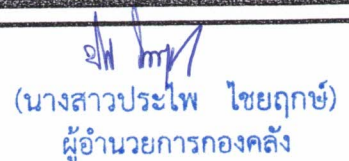 (นางสาวประไพ ไชยฤกษ์)
ผู้อำนวยการกองคลัง